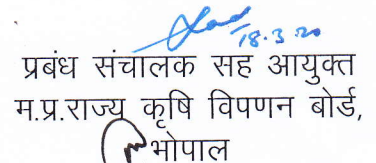 18.3.20
प्रबंध संचालक सह आयुक्त
म.प्र.राज्य कृषि विपणन बोर्ड,
भोपाल